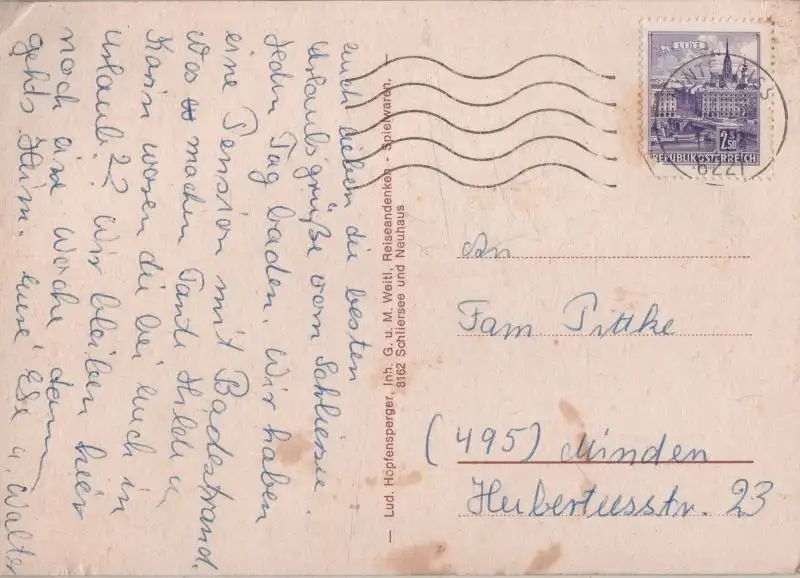 euch lieben die besten
Urlaubsgrüße vom Schliersee.
Jeden Tag baden. Wir haben
eine Pension mit Badestrand.
Was machen Tante Hilde u.
Karin waren die bei euch in
Urlaub?? Wir bleiben hier
noch eine Woche dann
gehts Heim. eure Else u. Walter
— Lud. Hopfensperger, Inh. G. u. M. Weitl, Reiseandenken - Spielwaren, —
8162 Schliersee und Neuhaus
LINZ
2.50
REPUBLIK ÖSTERREICH
An
Fam Pittke
(495) Minden
Hubertusstr. 23